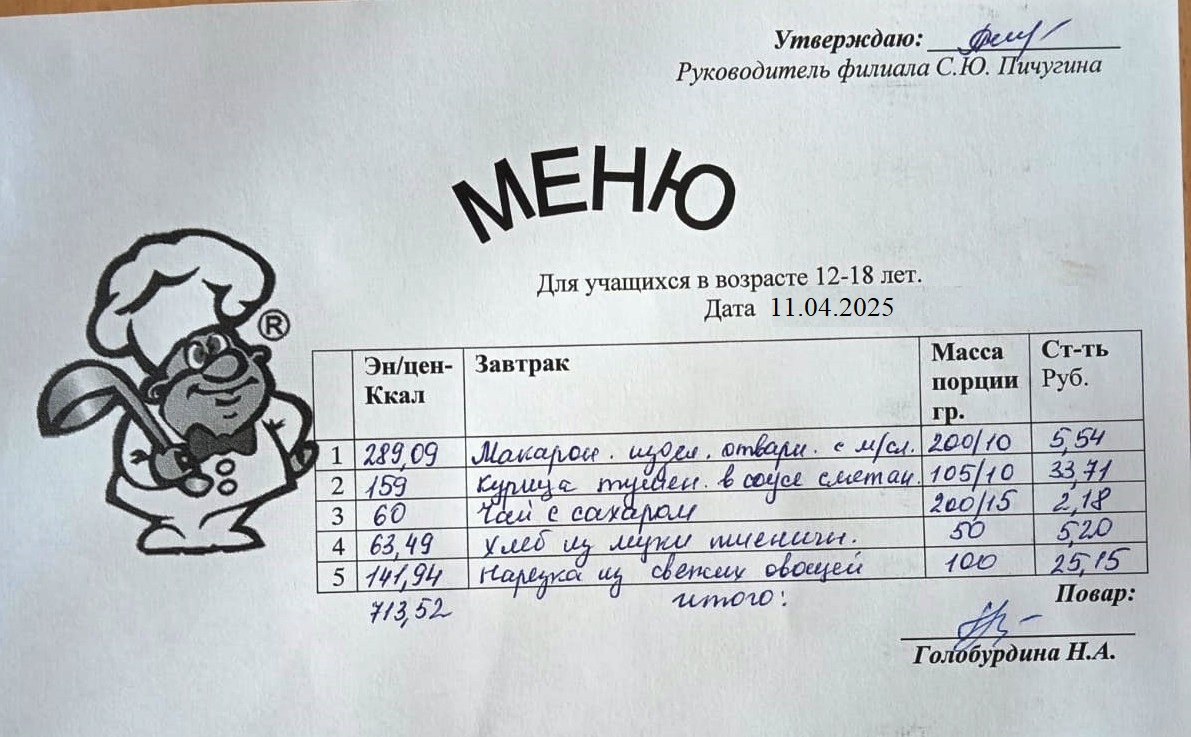 Утверждаю:
Руководитель филиала С.Ю. Пичугина
МЕНЮ
Для учащихся в возрасте 12-18 лет.
Дата 11.04.2025
®
Эн/цен-Ккал Завтрак Масса порции гр. Ст-ть Руб.
1 289,09 Макарон. издел. отварн. с м/сл. 200/10 5,54
2 159 Курица тушен. в соусе сметан. 105/10 33,71
3 60 Чай с сахаром 200/15 2,18
4 63,49 Хлеб из муки пшеничн. 50 5,20
5 141,94 Нарезка из свежих овощей 100 25,15
713,52 итого:
Повар:
Голобурдина Н.А.